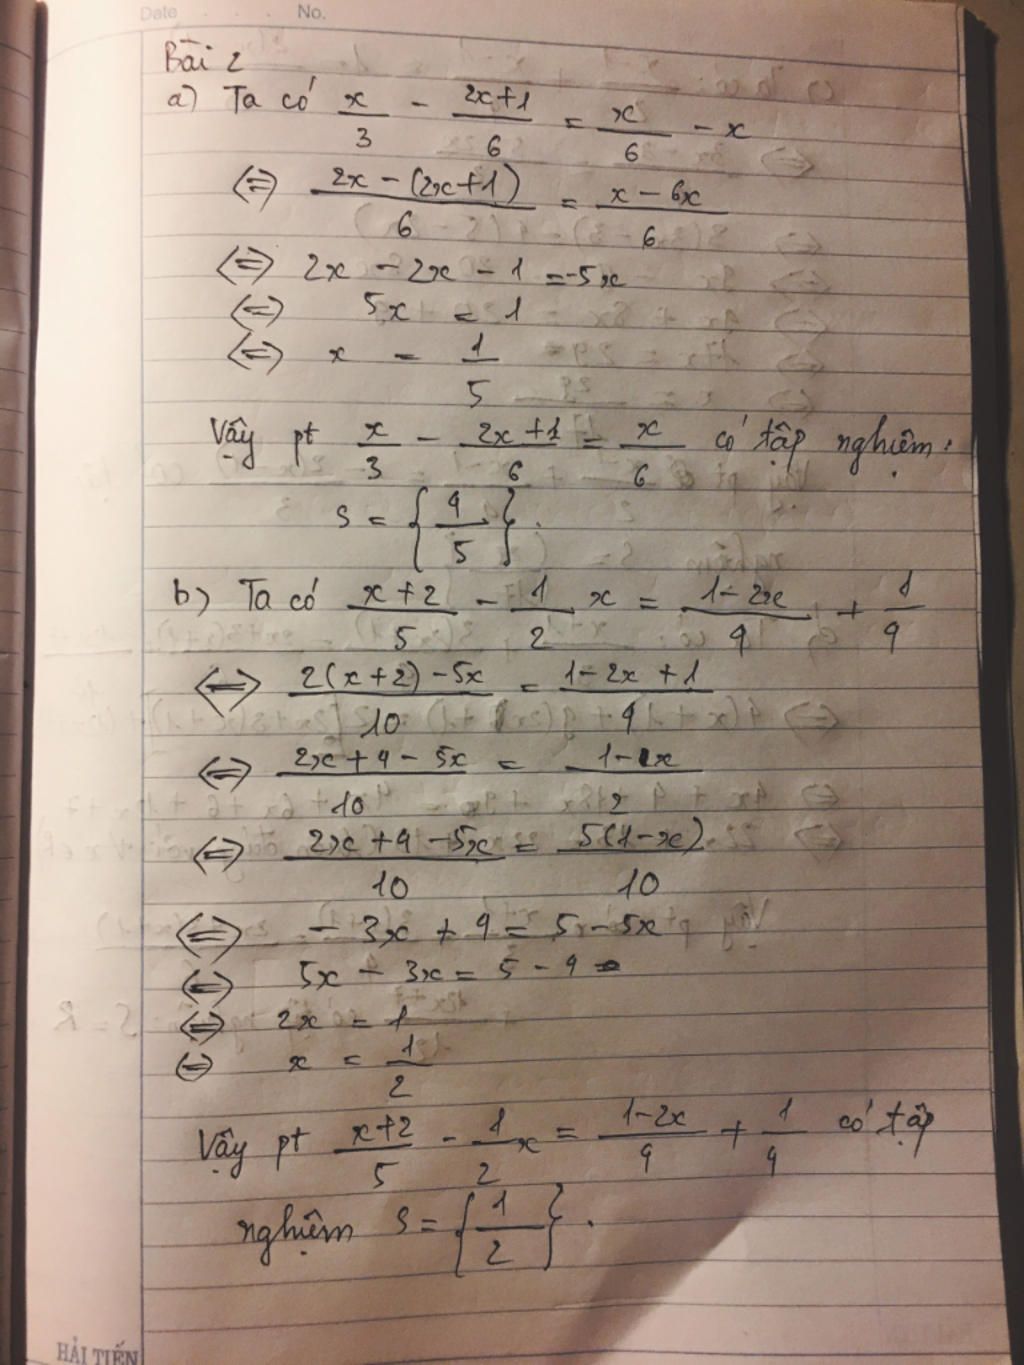 Date No.
Bài 2
a) Ta có x/3 - (2x+1)/6 = x/6 - x
⇔ (2x - (2x+1))/6 = (x - 6x)/6
⇔ 2x - 2x - 1 = -5x
⇔ 5x = 1
⇔ x = 1/5
Vậy pt x/3 - (2x+1)/6 = x/6 có tập nghiệm:
S = {1/5}.
b) Ta có (x+2)/5 - 1/2 x = (1-2x)/4 + 1/4
⇔ (2(x+2) - 5x)/10 = (1-2x+1)/4
⇔ (2x+4-5x)/10 = (1-x)/2
⇔ (2x+4-5x)/10 = 5(1-x)/10
⇔ -3x + 4 = 5 - 5x
⇔ 5x - 3x = 5 - 4
⇔ 2x = 1
⇔ x = 1/2
Vậy pt (x+2)/5 - 1/2 x = (1-2x)/4 + 1/4 có tập
nghiệm S = {1/2}.
HẢI TIẾN